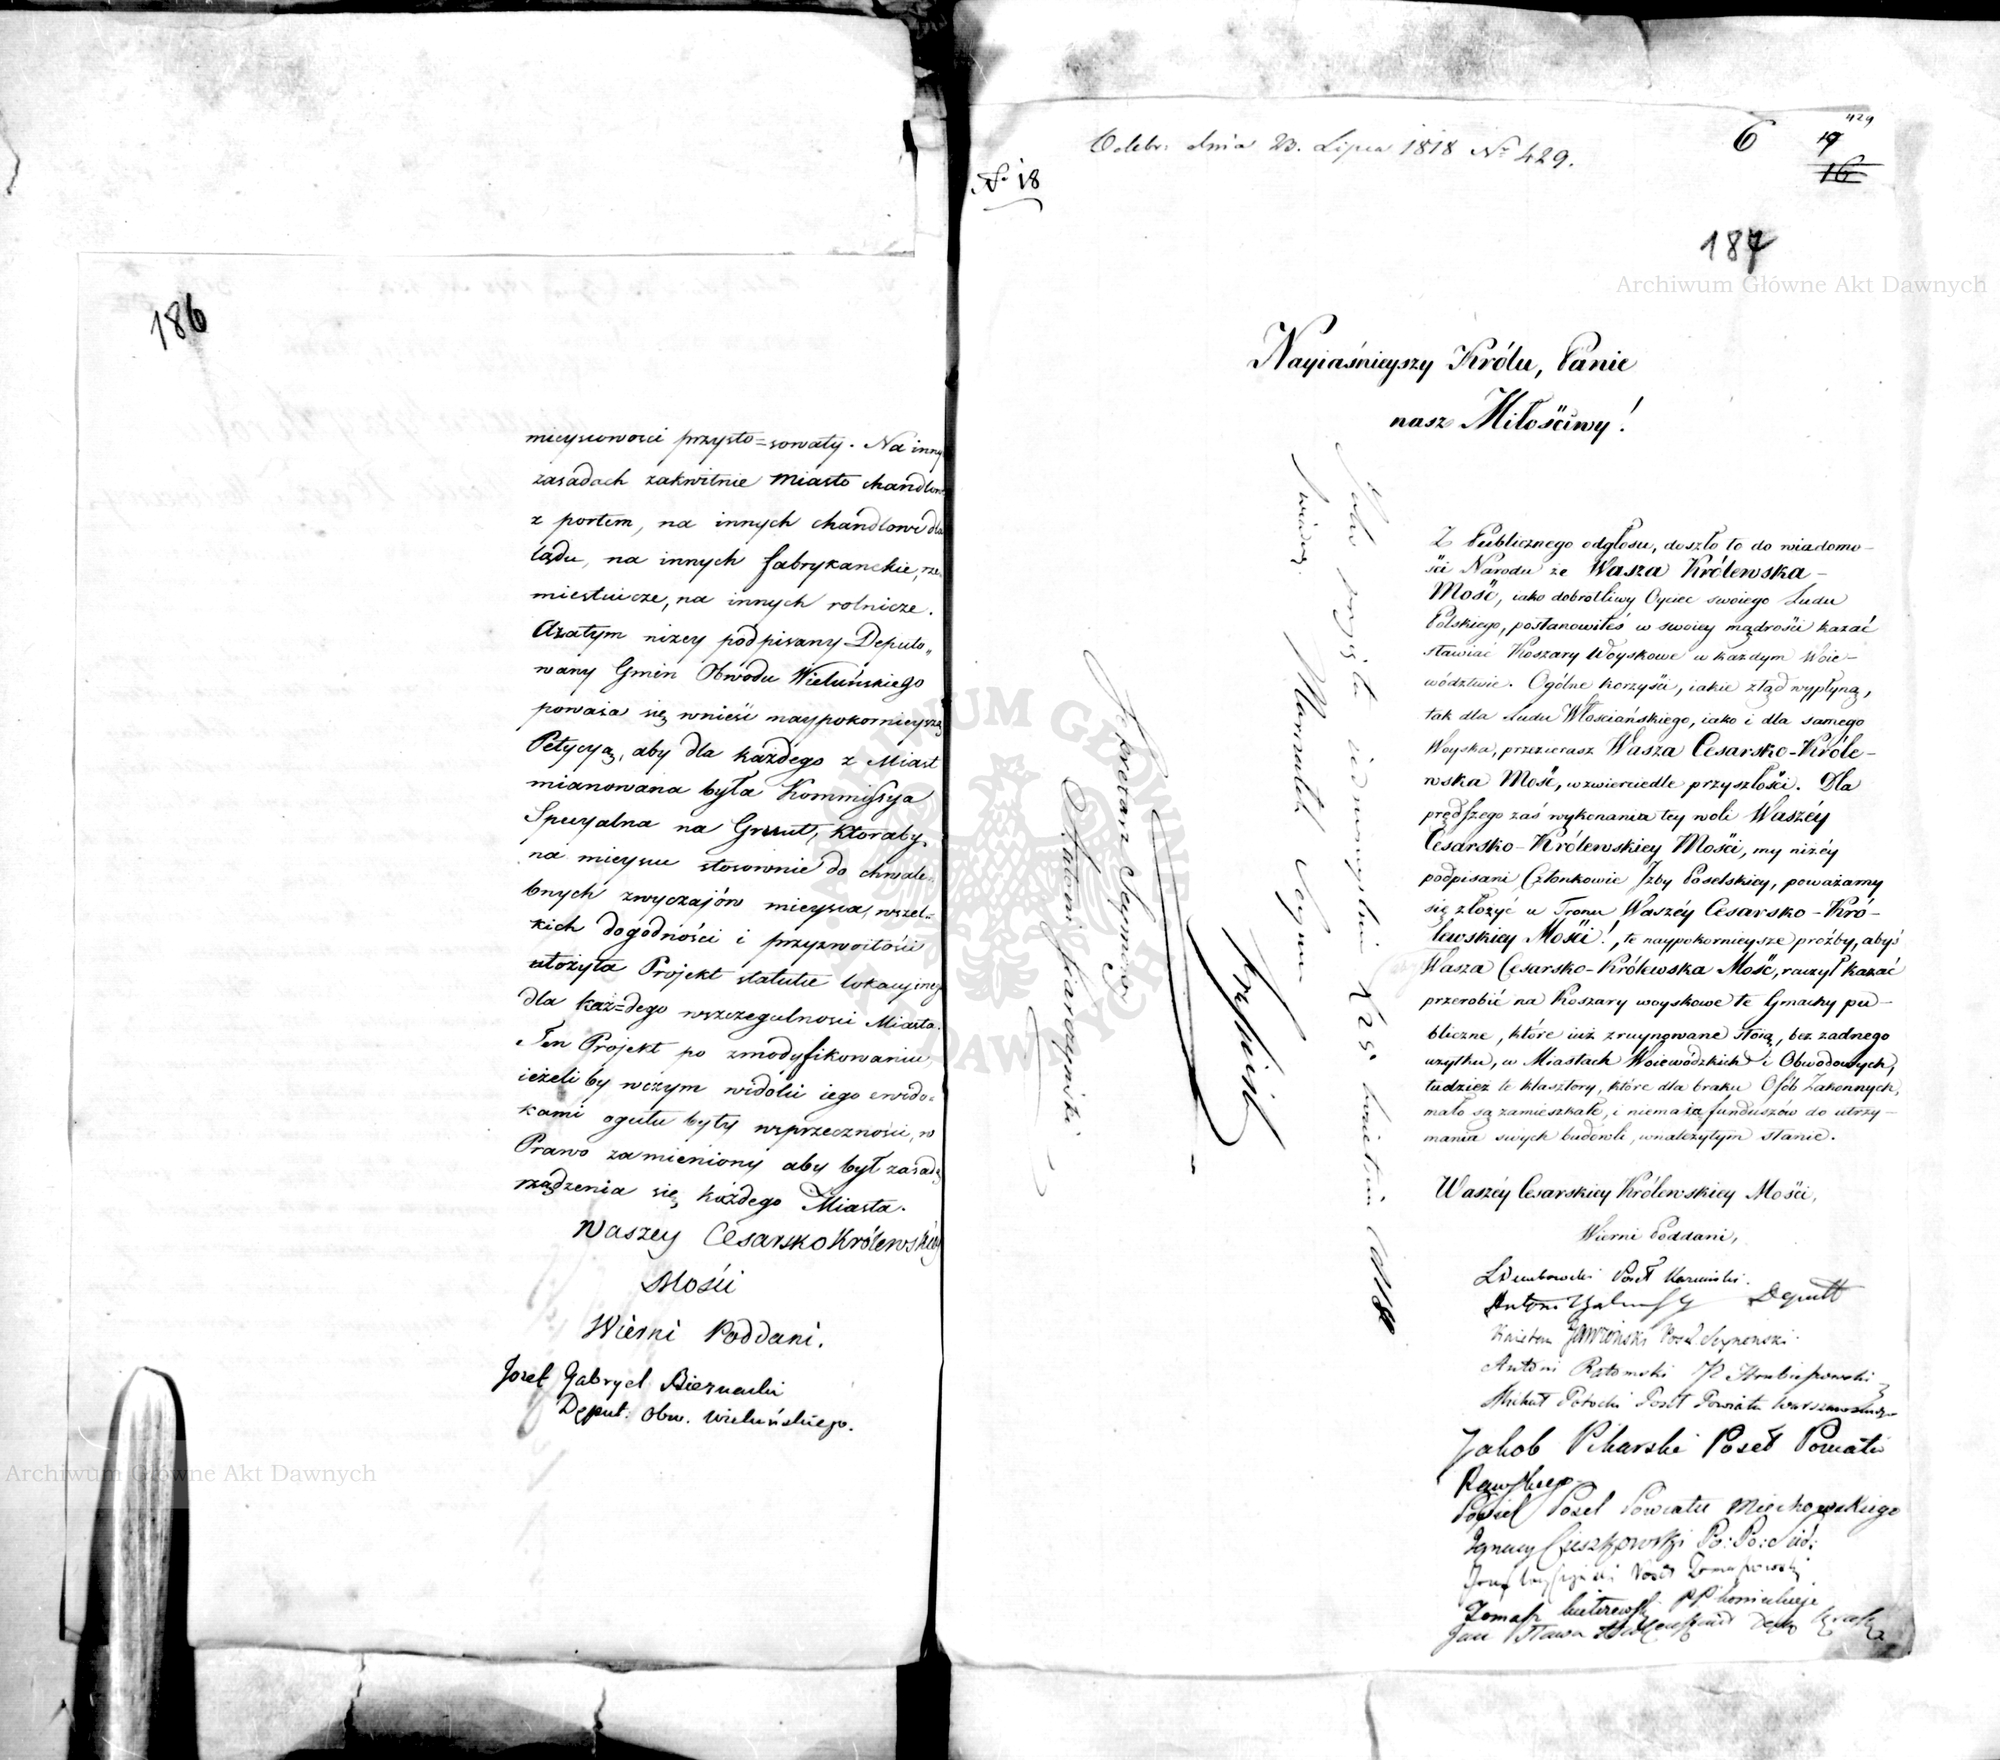 186
mieyscowosci przysto=sowały. Na inny
zasadach zakwitnie Miasto chandlow
z portem, na innych chandlowe dla
lądu, na innych fabrykanckie, rze
miestnicze, na innych rolnicze.
Azatym nizey podpisany Deputo„
wany Gmin Obwodu Wieluńskiego
powaza się wnieść naypokornieyszą
Petycyą, aby dla każdego z Miast
mianowana była Kommissya
Specyalna na Grunt, ktoraby
na mieyscu stosownie do chwale„
bnych zwyczajów mieysca, wszel=
kich dogodności i przyzwoitości
ułożyła Projekt statutu lokacyjneg
dla każ=dego wszczegulnosci Miasta.
Ten Projekt po zmodyfikowaniu,
ieżeli by wczym widoki iego zwido=
kami ogułu były wsprzeczności, w
Prawo zamieniony aby był zasadą
rządzenia się każdego Miasta.
Waszey CesarskoKrólewskiey
Mości
Wierni Poddani.
Jozef Gabryel Biernacki
Deput: Obw. Wieluńskiego.
Odebr: dnia 23. Lipca 1818 Nº 429.
6
429
19
16
Nº 18
187
Nayiaśnieyszy Królu, Panie
nasz Miłościwy!
Z Publicznego odgłosu, doszło to do wiadomo–
ści Narodu że Wasza Królewska–
Mość, iako dobrotliwy Oyciec swoiego Ludu
Polskiego, postanowiłeś w swoiey mądrości kazać
stawiać Koszary Woyskowe w każdym Woie–
wództwie. Ogólne korzyści, iakie ztąd wypłyną,
tak dla Ludu Włościańskiego, iako i dla samego
Woyska, przezierasz Wasza Cesarsko-Króle–
wska Mość, wzwierciedle przyszłości. Dla
prędszego zaś wykonania tey woli Waszéy
Cesarsko-Królewskiey Mości, my niżéy
podpisani Członkowie Izby Poselskiey, poważamy
się złożyć u Tronu Waszéy Cesarsko-Kró–
lewskiey Mości!, te naypokornieysze proźby, abyś
Wasza Cesarsko-Królewska Mość, raczył kazać
przerobić na Koszary woyskowe te Gmachy pu–
bliczne, które iuż zruynowane stoią, bez żadnego
użytku, w Miastach Woiewódzkich i Obwodowych,
tudzież te klasztory, które dla braku Osób Zakonnych,
mało są zamieszkałe, i niemaią funduszów do utrzy–
mania swych budowli, wnależytym stanie.
Waszéy Cesarskiey Królewskiey Mości,
Wierni Poddani,
Poseł
Antoni Deputt
Jaworski Poseł
Antoni Ratomski
Michał Potocki Poseł Powiatu Warszawskiego
Jakob Piharski Poseł Powiatu
Rawskiego
Popiel Poseł Powiatu Miechowskiego
Ignacy Po: Po:
Poseł
Tomasz
Jan
Jako przyięta iednomyślnie 23 kwietnia 1818
świadczę. Marszałek Seymu
Sekretarz Seymowy
Antoni